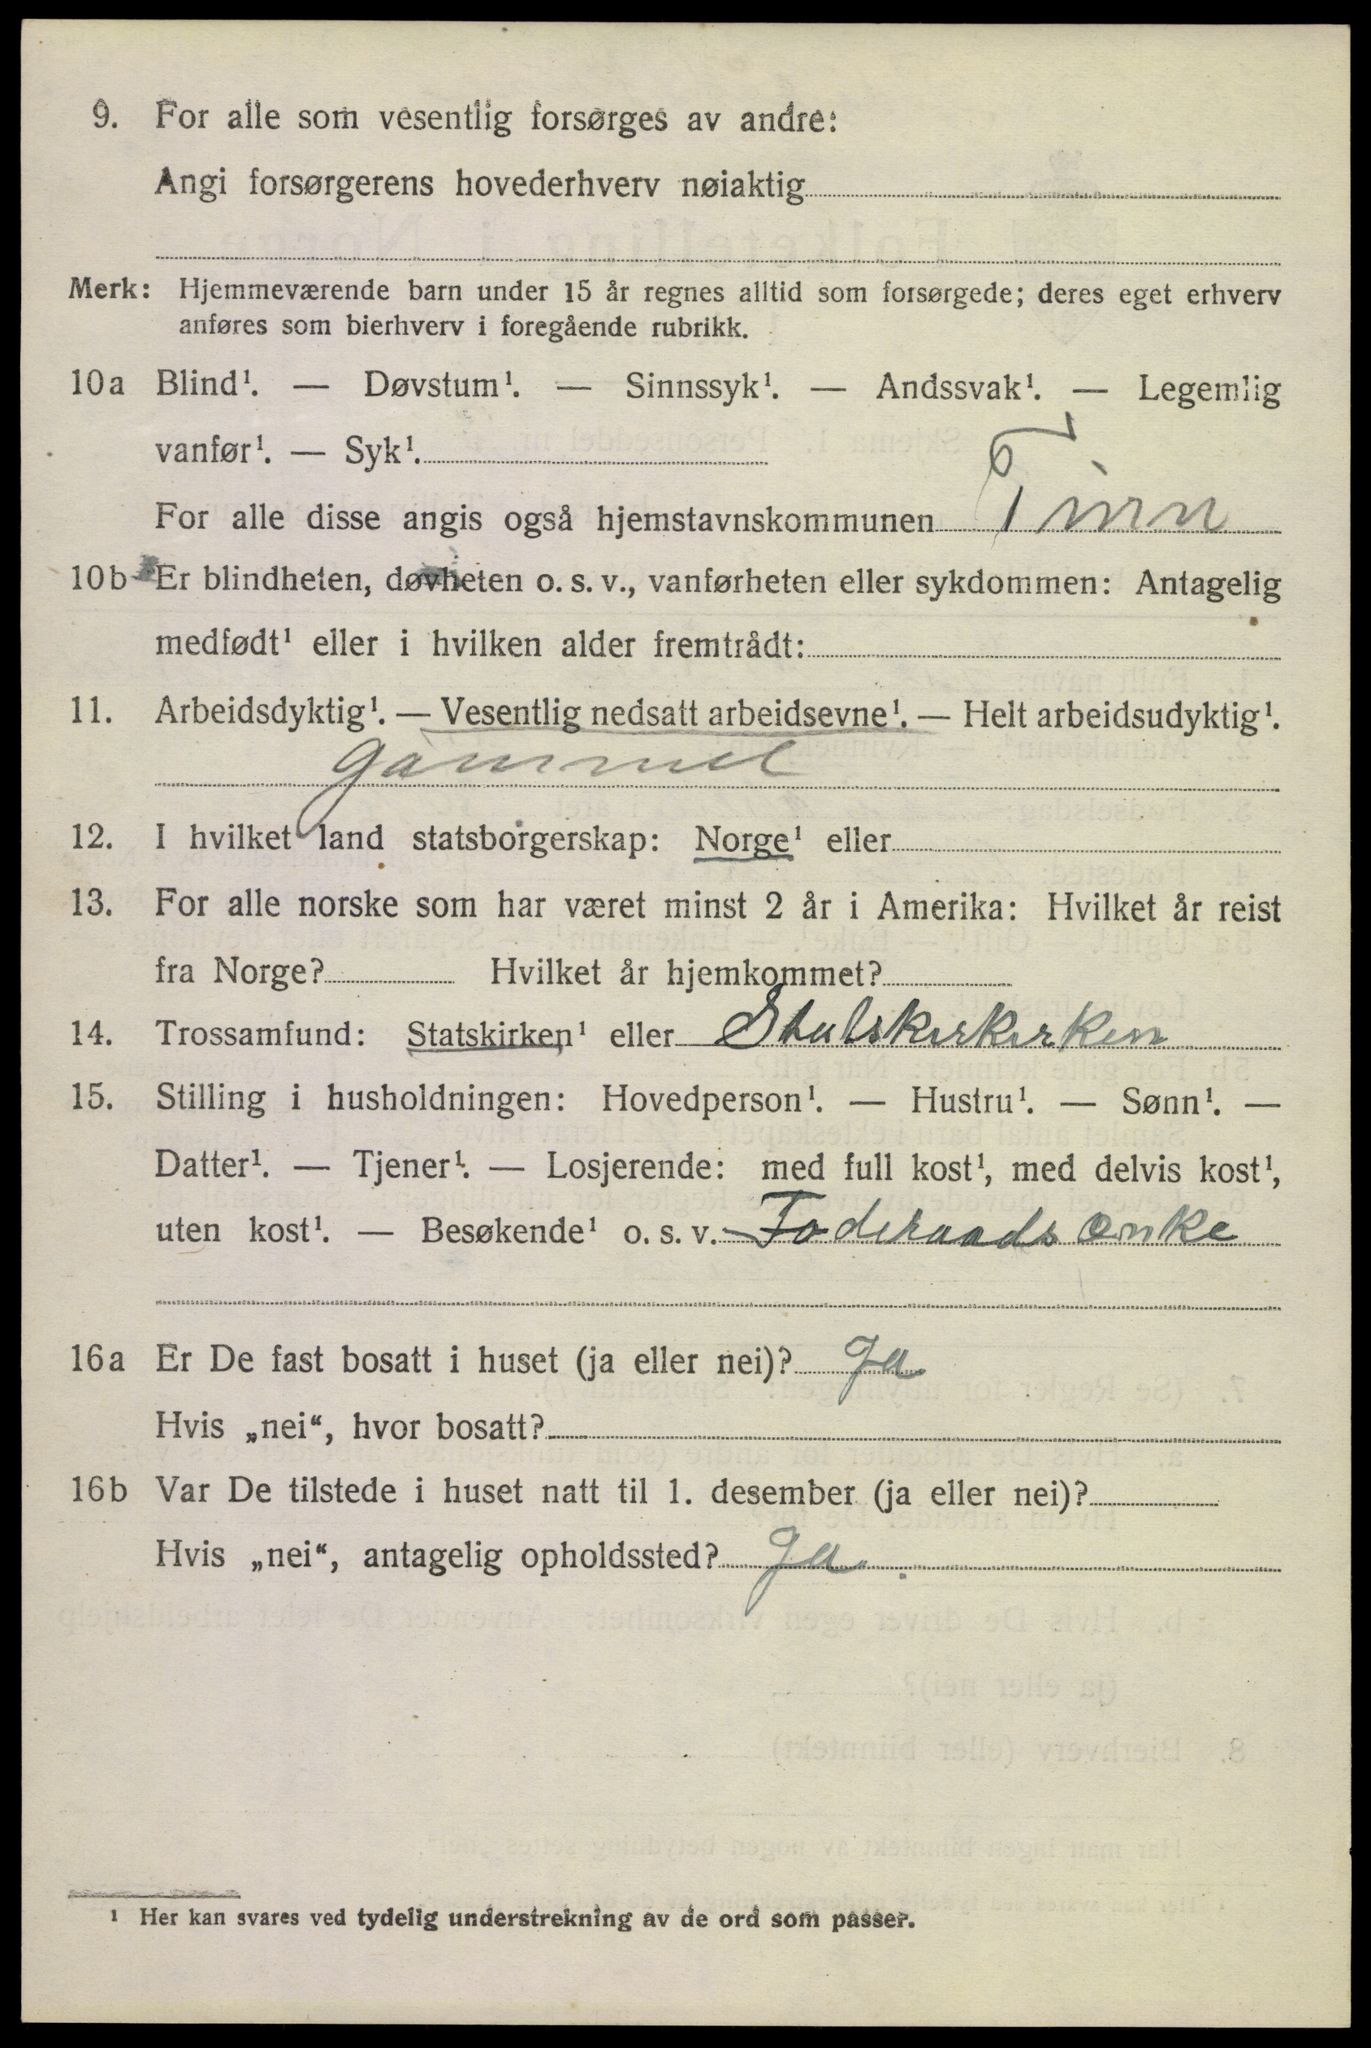 9. For alle som vesentlig forsørges av andre:
Angi forsørgerens hovederhverv nøiaktig
Merk: Hjemmeværende barn under 15 år regnes alltid som forsørgede; deres eget erhverv
anføres som bierhverv i foregående rubrikk.
10a Blind¹. — Døvstum¹. — Sinnssyk¹. — Andssvak¹. — Legemlig
vanfør¹. — Syk¹.
For alle disse angis også hjemstavnskommunen Tinn
10b Er blindheten, døvheten o. s. v., vanførheten eller sykdommen: Antagelig
medfødt¹ eller i hvilken alder fremtrådt:
11. Arbeidsdyktig¹. — Vesentlig nedsatt arbeidsevne¹. — Helt arbeidsudyktig¹.
gammel
12. I hvilket land statsborgerskap: Norge¹ eller
13. For alle norske som har været minst 2 år i Amerika: Hvilket år reist
fra Norge? Hvilket år hjemkommet?
14. Trossamfund: Statskirken¹ eller
15. Stilling i husholdningen: Hovedperson¹. — Hustru¹. — Sønn¹. —
Datter¹. — Tjener¹. — Losjerende: med full kost¹, med delvis kost¹,
uten kost¹. — Besøkende¹ o. s. v. Foderaads enke
16a Er De fast bosatt i huset (ja eller nei)? Ja
Hvis „nei“, hvor bosatt?
16b Var De tilstede i huset natt til 1. desember (ja eller nei)?
Hvis „nei“, antagelig opholdssted? Ja.
¹ Her kan svares ved tydelig understrekning av de ord som passer.